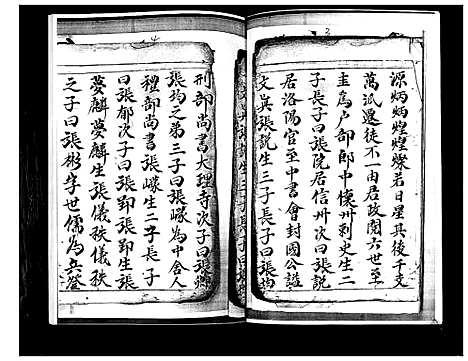 源炳炳煌煌燦若日星其後千支
萬派遷徒不一由居政閱六世至
圭為戶部郎中懷州刺史生二
子長子曰張阮居信州次曰張説
居洛陽官至中書會封國公謚
文㒷張說生三子長子曰張均
刑部尚書大理寺次子曰張
張均之弟三子曰張㟲為中舍人
禮部尚書張㟲生二子長子
曰張郁次子曰張鄖生張
夢麟夢麟生張儀秩儀秩
之子曰張彬字世儒為兵登